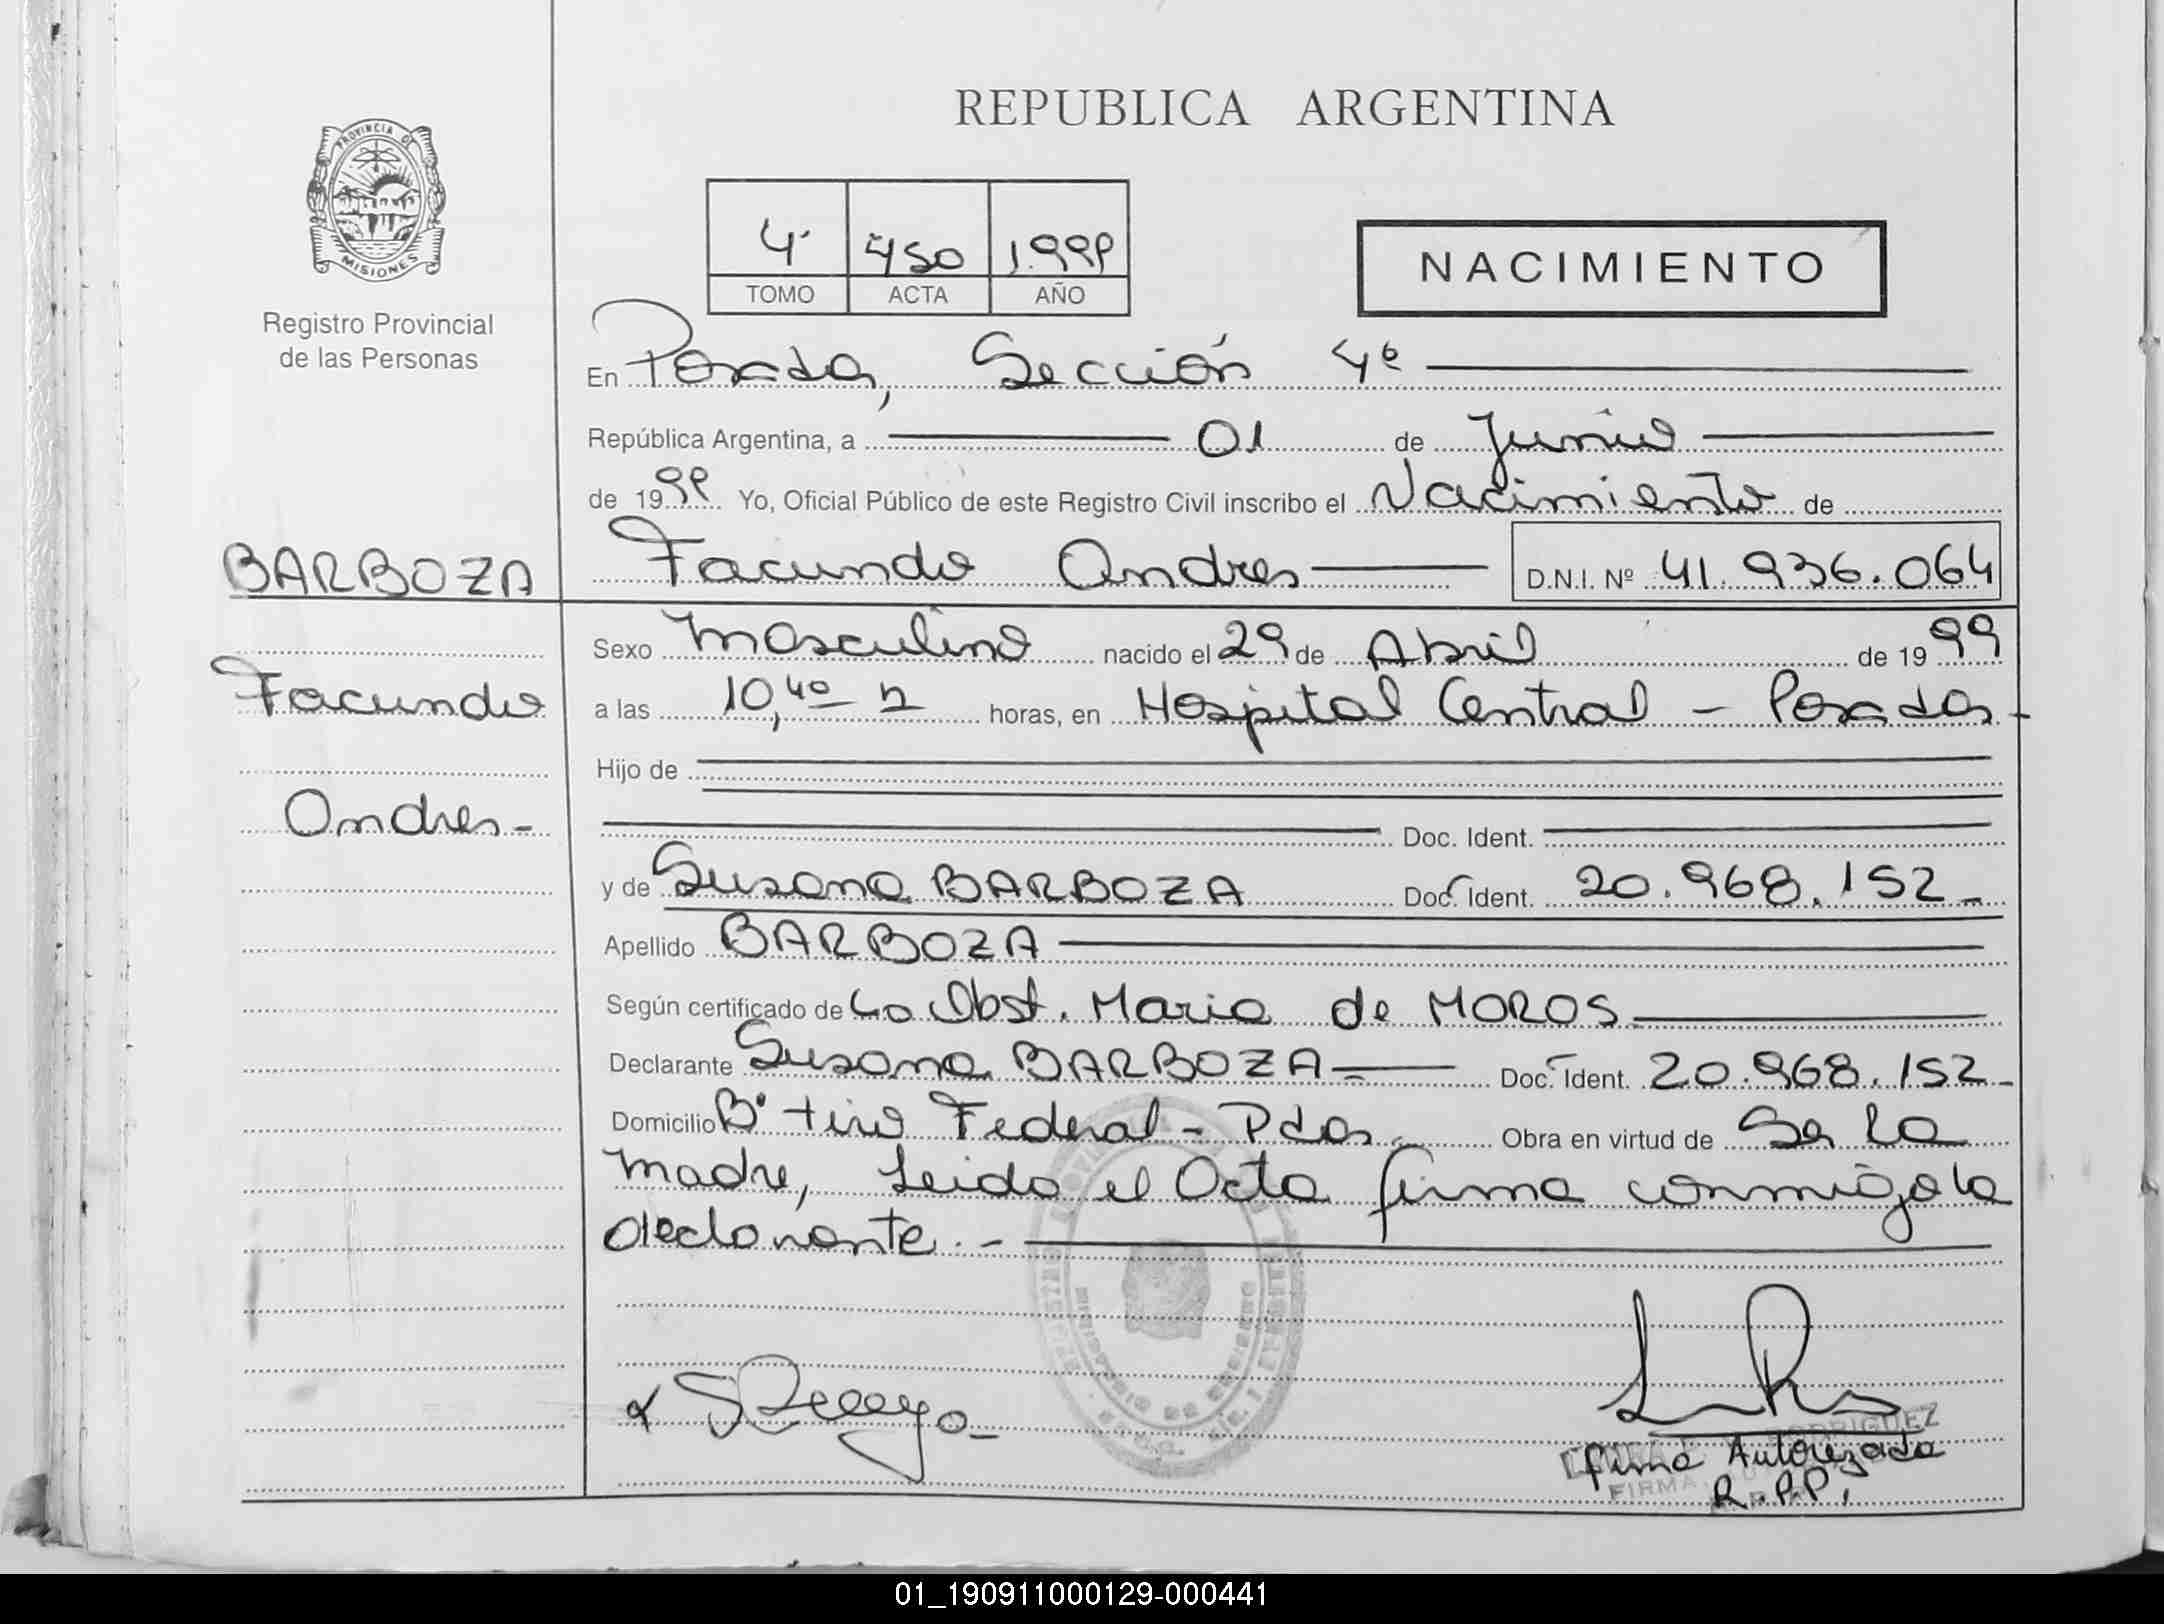 REPUBLICA ARGENTINA
PROVINCIA DE
MISIONES
Registro Provincial
de las Personas
4 450 1.999
TOMO ACTA AÑO
NACIMIENTO
En Posadas, Sección 4º
República Argentina, a 01 de Junio
de 1999 Yo, Oficial Público de este Registro Civil inscribo el Nacimiento de
BARBOZA
Facundo Andres D.N.I. Nº 41.936.064
Sexo Masculino nacido el 29 de Abril de 1999
Facundo
a las 10,40 h horas, en Hospital Central - Posadas-
Hijo de
Andres-
Doc. Ident.
y de Susana BARBOZA Doc. Ident. 20.968.152-
Apellido BARBOZA
Según certificado de La Obst. Maria de MOROS
Declarante Susana BARBOZA- Doc. Ident. 20.968.152-
Domicilio Bº tiro Federal - Pdas- Obra en virtud de Ser la
madre, Leida el Acta firma conmigo la
declarante.-
RODRIGUEZ
Firma Autorizada
FIRMA
R.P.P.
01_190911000129-000441